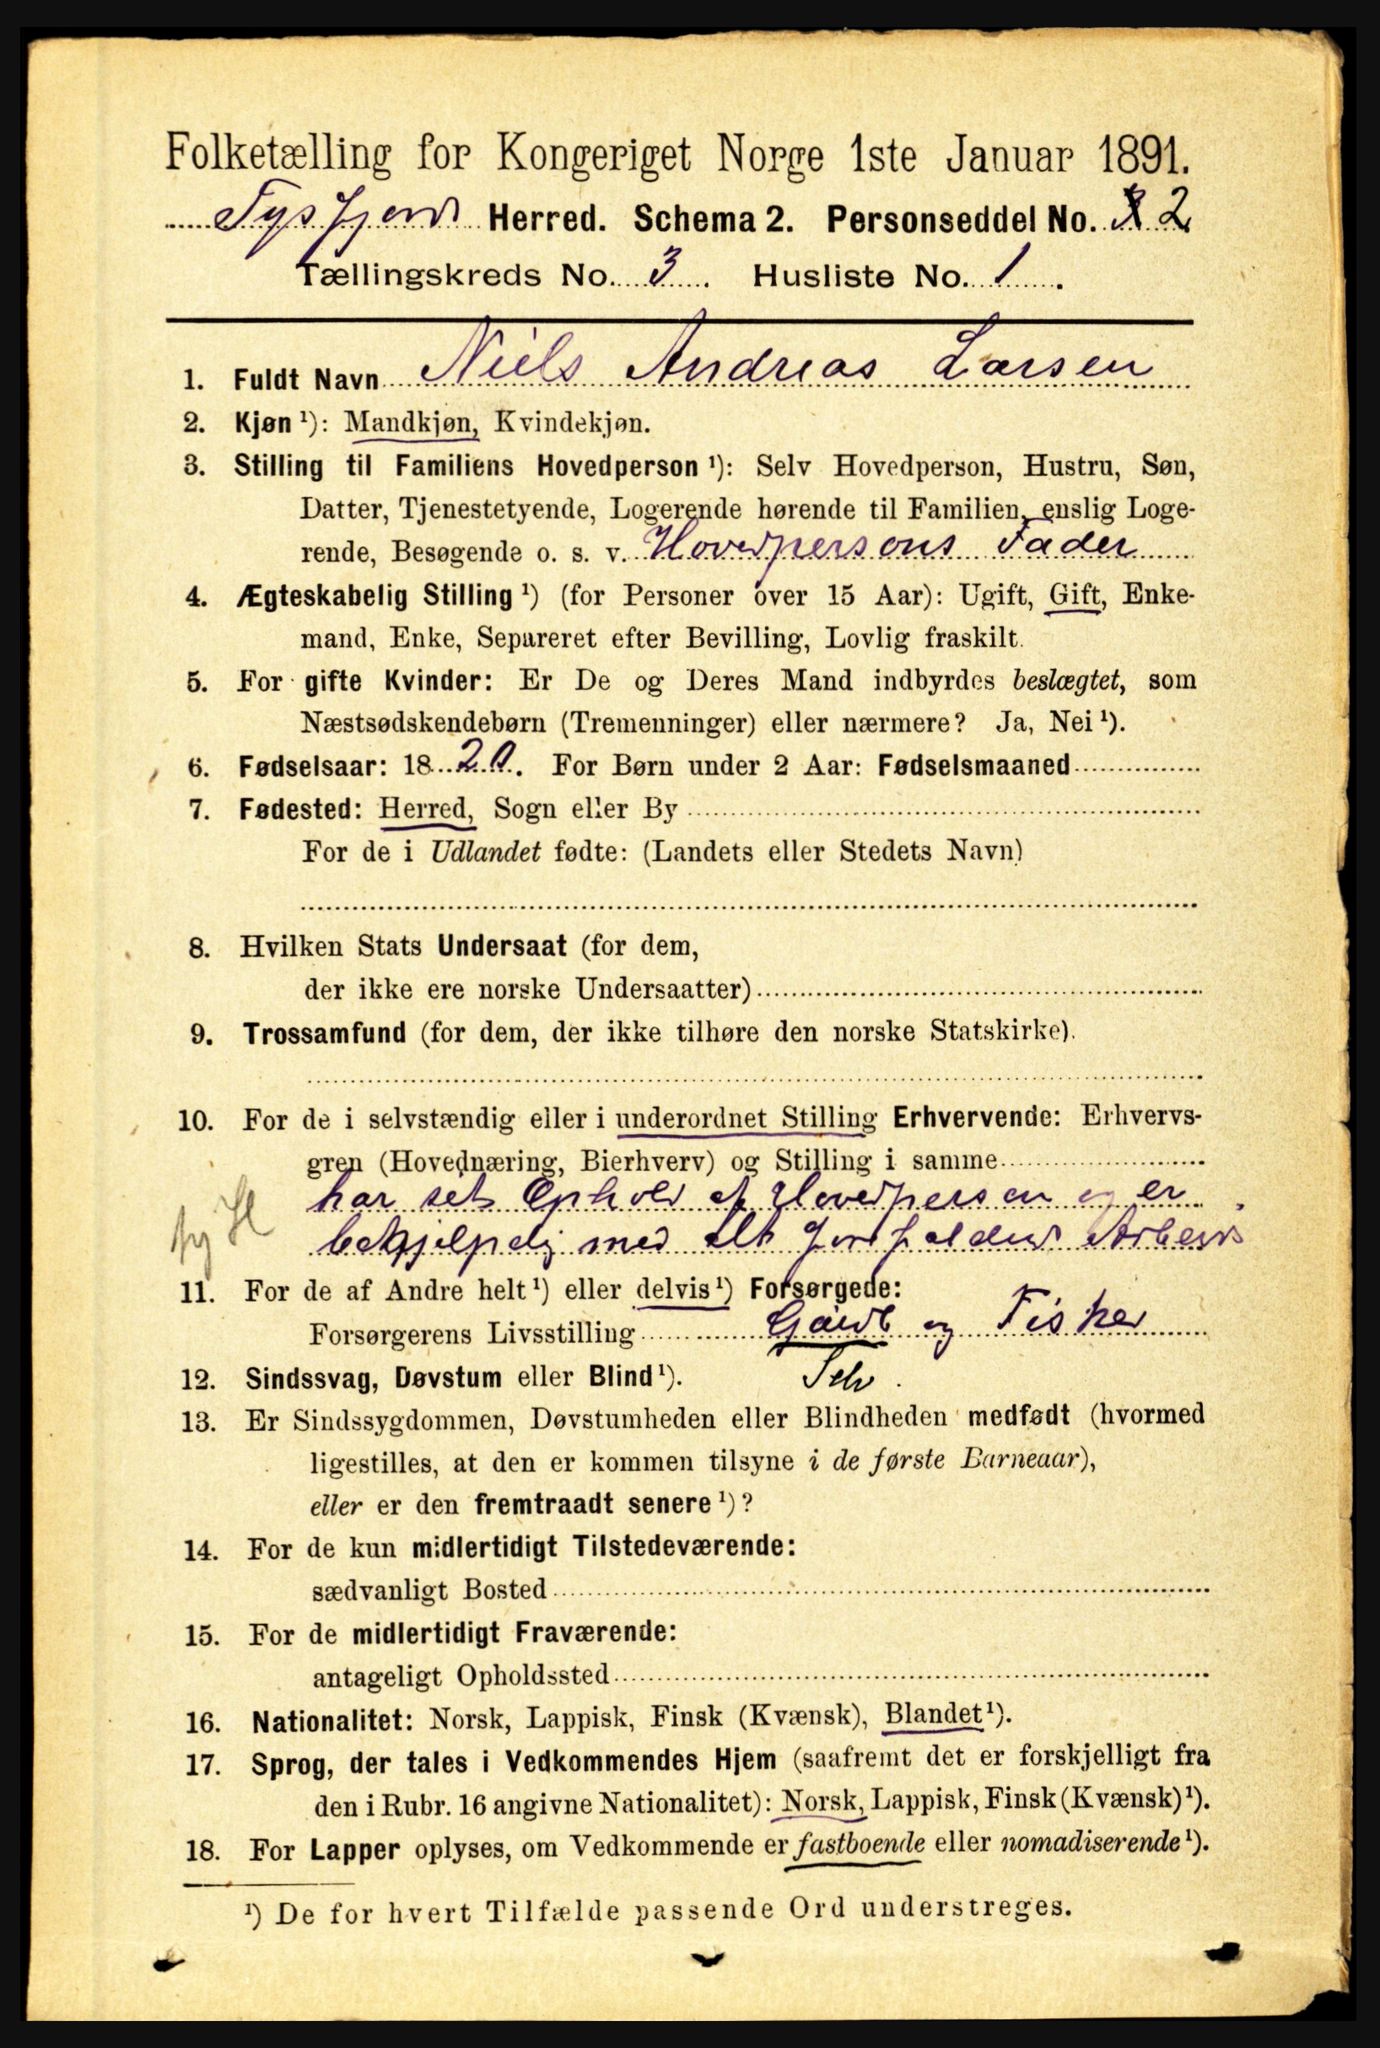 Folketælling for Kongeriget Norge 1ste Januar 1891.
Tysfjord Herred. Schema 2. Personseddel No. 2
Tællingskreds No. 3. Husliste No. 1.
1. Fuldt Navn Niels Andreas Larsen
2. Kjøn ¹): Mandkjøn, Kvindekjøn.
3. Stilling til Familiens Hovedperson ¹): Selv Hovedperson, Hustru, Søn,
Datter, Tjenestetyende, Logerende hørende til Familien, enslig Loge-
rende, Besøgende o. s. v. Hovedpersons Fader
4. Ægteskabelig Stilling ¹) (for Personer over 15 Aar): Ugift, Gift, Enke-
mand, Enke, Separeret efter Bevilling, Lovlig fraskilt.
5. For gifte Kvinder: Er De og Deres Mand indbyrdes beslægtet, som
Næstsødskendebørn (Tremenninger) eller nærmere? Ja, Nei ¹).
6. Fødselsaar: 1820. For Børn under 2 Aar: Fødselsmaaned
7. Fødested: Herred, Sogn eller By
For de i Udlandet fødte: (Landets eller Stedets Navn)
8. Hvilken Stats Undersaat (for dem,
der ikke ere norske Undersaatter)
9. Trossamfund (for dem, der ikke tilhøre den norske Statskirke).
10. For de i selvstændig eller i underordnet Stilling Erhvervende: Erhvervs-
gren (Hovednæring, Bierhverv) og Stilling i samme
har set Ophold af Hovedpersen og er
behjelpelig med alt forfaldend Arbeid
11. For de af Andre helt ¹) eller delvis ¹) Forsørgede:
Forsørgerens Livsstilling Gaardb og Fisker
12. Sindssvag, Døvstum eller Blind ¹). Selv.
13. Er Sindssygdommen, Døvstumheden eller Blindheden medfødt (hvormed
ligestilles, at den er kommen tilsyne i de første Barneaar),
eller er den fremtraadt senere ¹)?
14. For de kun midlertidigt Tilstedeværende:
sædvanligt Bosted
15. For de midlertidigt Fraværende:
antageligt Opholdssted
16. Nationalitet: Norsk, Lappisk, Finsk (Kvænsk), Blandet ¹).
17. Sprog, der tales i Vedkommendes Hjem (saafremt det er forskjelligt fra
den i Rubr. 16 angivne Nationalitet): Norsk, Lappisk, Finsk (Kvænsk) ¹).
18. For Lapper oplyses, om Vedkommende er fastboende eller nomadiserende ¹).
¹) De for hvert Tilfælde passende Ord understreges.